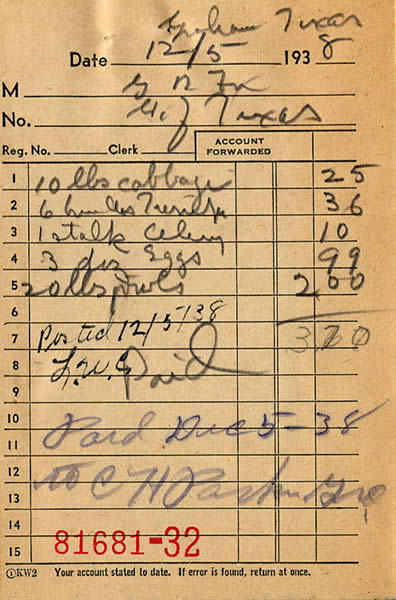 Graham Texas
Date 12/5 1938
M G R Fox
No. Texas
Reg. No. Clerk ACCOUNT FORWARDED
1 10 lbs cabbage 25
2 6 bunches 36
3 1 stalk Celery 10
4 3 doz Eggs 99
5 20 lbs 2 00
6
7 Posted 12/5/38 3 70
8 Paid
9
10 Paid Dec 5-38
11
12 to C H
13
14
15 81681-32
1KW2 Your account stated to date. If error is found, return at once.